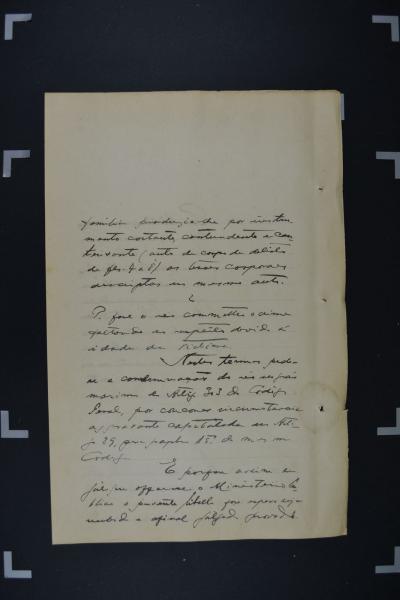 familia produzio-lhe por instru-
mento cortante, contundente e con-
(auto de corpo de delicto
de fls. 4 a 8) as lesões corporaes
descriptas no mesmo auto.
E
P. que o réo commetteu o crime
faltando ao respeito devido á
idade da victima.
Nestes termos pede-
se a condemnação do réo no gráo
maximo do Artigo 303 do Codigo
Penal, por concorrer circumstancia
aggravante capitulada no Arti-
go 39, paragrapho do mesmo
Codigo.
E porque assim se
julgue offerece o Ministerio Pu-
blico o presente libello que espera seja
recebido e afinal julgado provado.